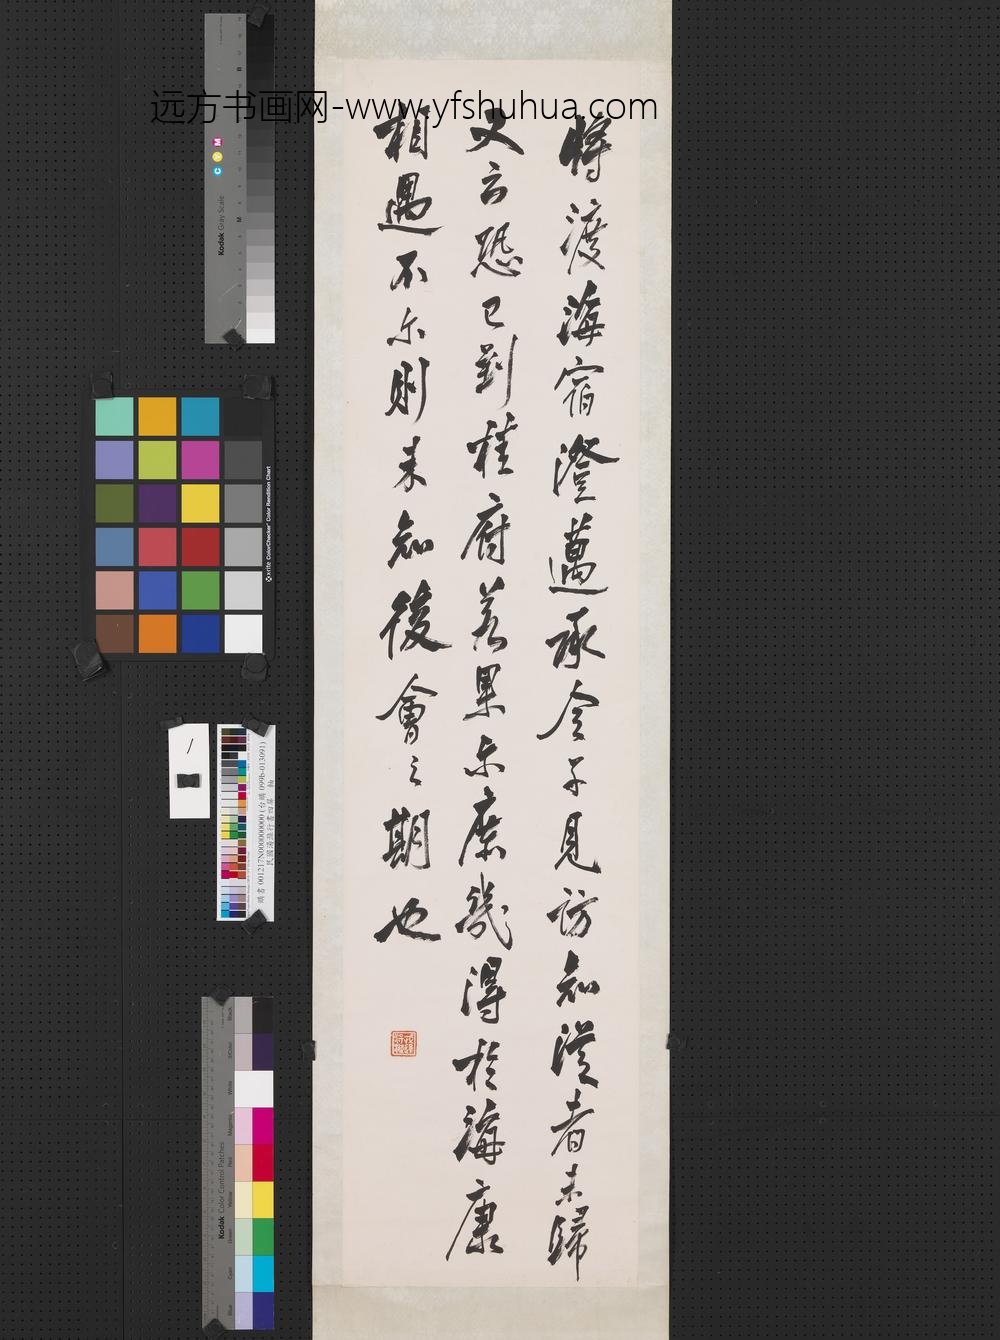 远方书画网-www.yfshuhua.com
将渡海宿澄邁承令子見訪知從者未歸
又云恐已到桂府若果尔庶幾得於海康
相遇不尔則未知後會之期也
Kodak Gray Scale
C Y M
B
M
x-rite ColorChecker Color Rendition Chart
購書 001217N000000000 (台購 099b-013091)
民國溥儒行書四屏 軸
Kodak Color Control Patches
Blue
Cyan
Green
Yellow
Red
Magenta
White
3/Color
Black